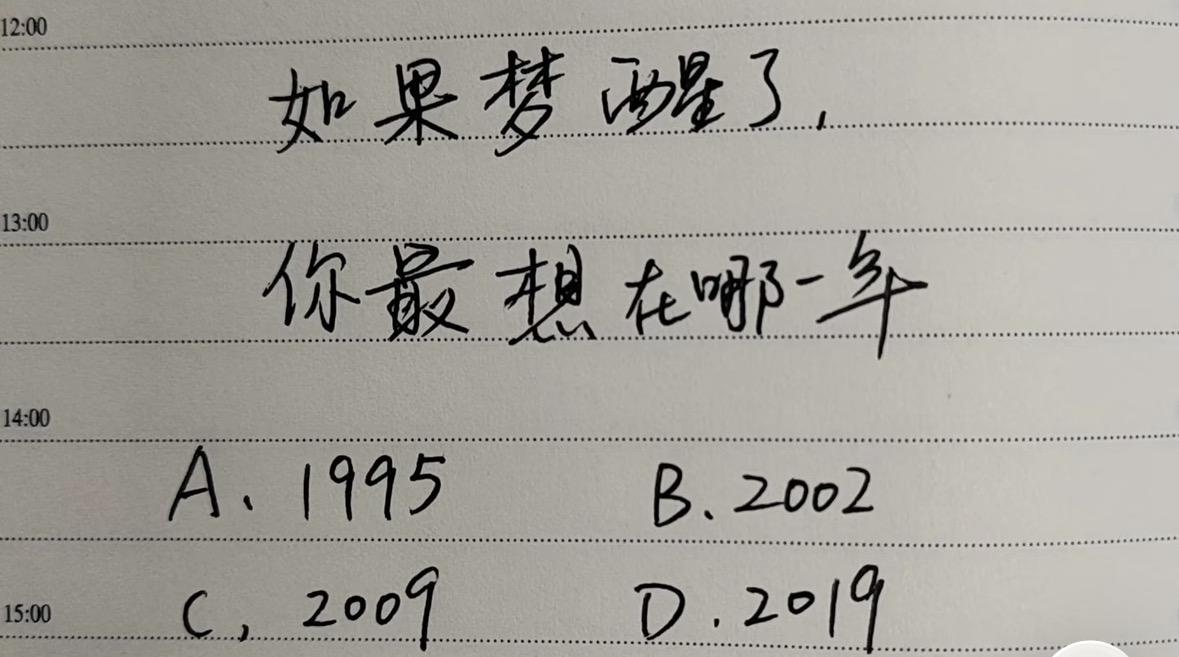 12:00
如果梦醒了,
13:00
你最想在哪一年
14:00
A、1995 B、2002
15:00
C, 2009 D.2019